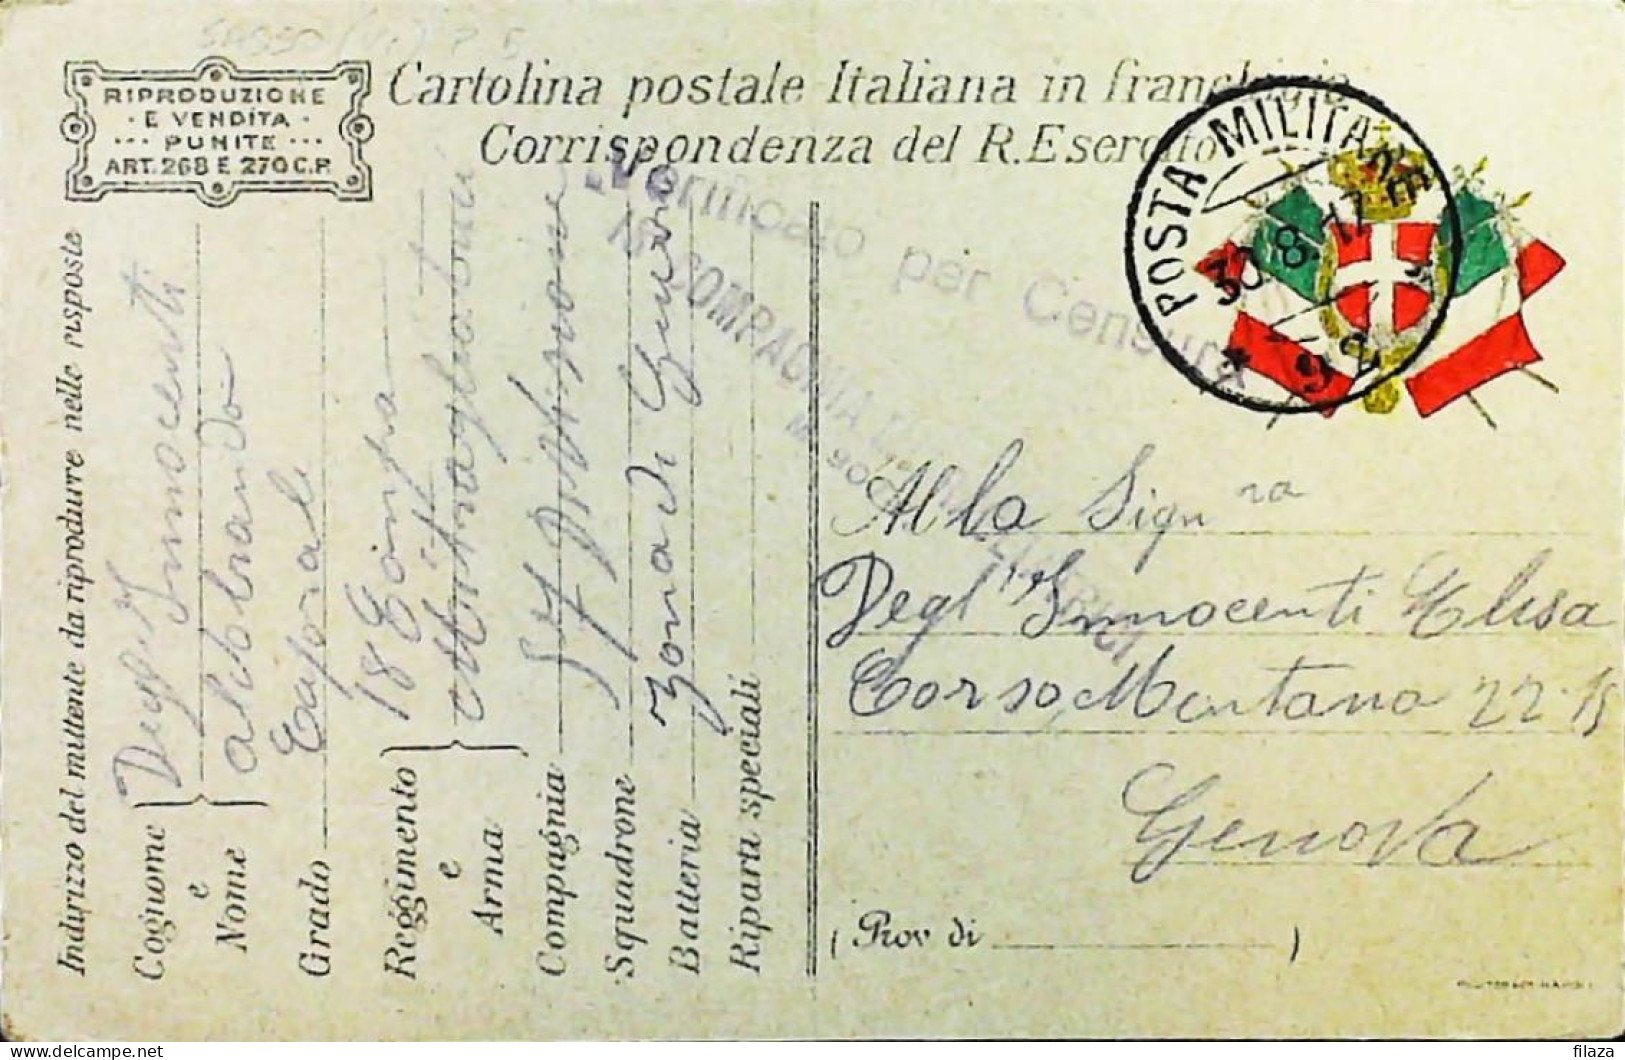 RIPRODUZIONE
· E VENDITA ·
··· PUNITE ···
ART. 268 E 270 C.P.
Cartolina postale Italiana in franchigia
Corrispondenza del R. Esercito
Verificato per Censura
18 COMPAGNIA
POSTA MILITARE
30.8.17
* 92
Indirizzo del mittente da riprodurre nelle risposte
Cognome Degl'Innocenti
e
Nome Aldobrando
Grado Caporale
Reggimento 18 Compa
e
Arma Mitragliatrici
Compagnia 54 Divisione
Squadrone
Batteria Zona di Guerra
Riparti speciali
Alla Sign ra
Degl'Innocenti Elisa
Corso Mentana 22-15
Genova
( Prov di )
filaza